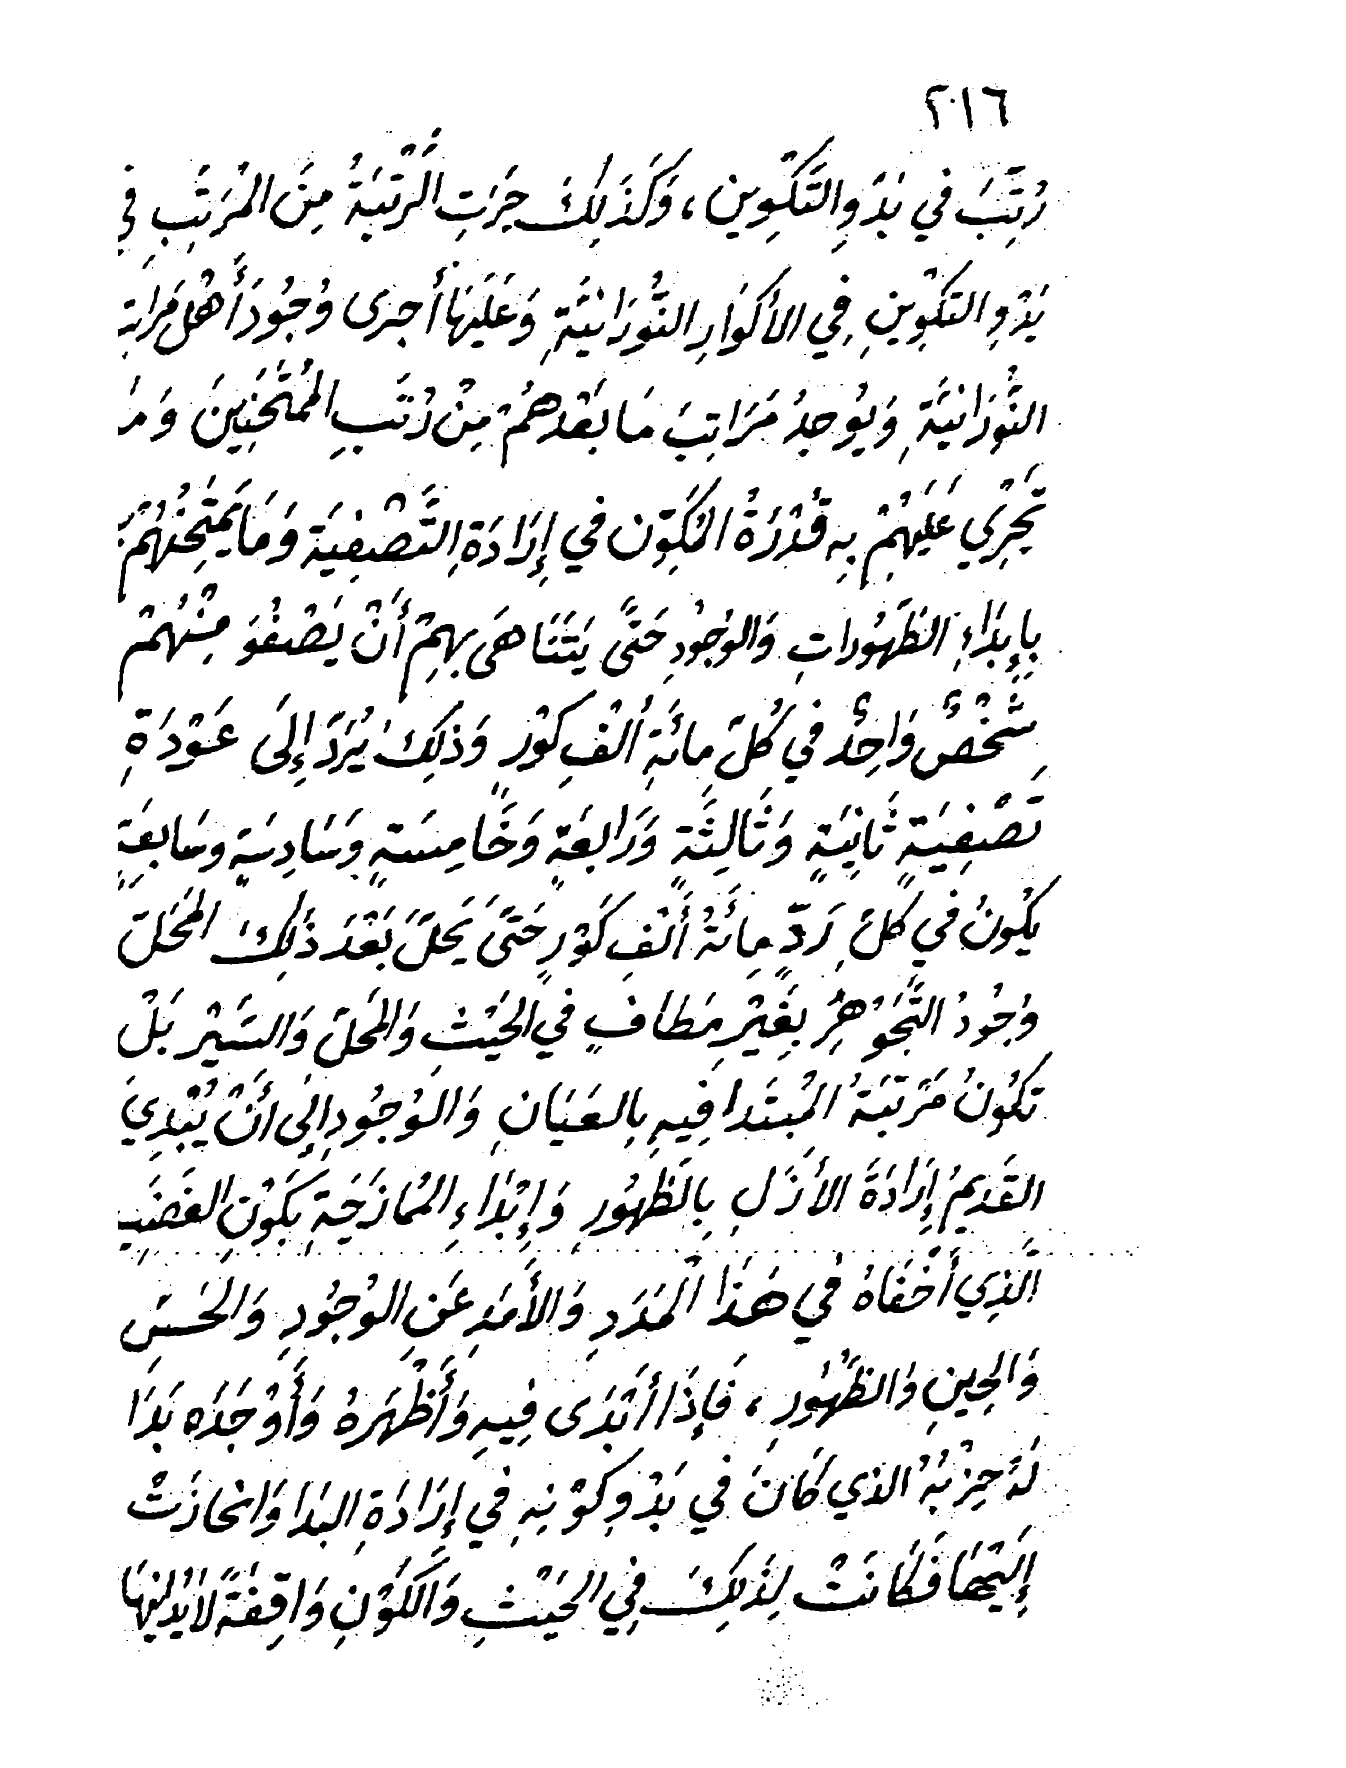 ٢٠١٦
رُتِّبَ في بَدْوِ التَّكْوِين ، وَكَذَلِكَ جَرَتِ الرُّتْبَةُ مِنَ المُرَتِّبِ فِي
بَدْوِ التَكْوِينِ فِي الأكْوَارِ النُّورَانيَّةِ وَعَلَيهَا أجرى وُجُودَ أَهْلِ مَرَاتِبِ
النُّورَانيَّةِ وَيُوجِدُ مَرَاتِبَ مَا بَعْدَهُمْ مِنْ رُتَبِ المُمْتَحَنِينَ وَمَا
تَجْرِي عَلَيْهِمْ بِهِ قُدْرَةُ المُكَوِّن في إِرَادَةِ التَّصْفِيَةِ وَمَا يَمْتَحِنُهُمْ
بِإِبدَاءِ الظُهُورَاتِ وَالوُجُودِ حَتَّى يَتَنَاهَى بِهِمْ أَنْ يَصْفُوَ مِنْهُمْ
شَخْصٌ وَاحِدٌ في كُلِّ مِائَةِ أَلْفِ كَوْرٍ وَذَلِكَ يُرَدُّ إِلَى عَوْدَةِ
تَصْفِيَةٍ ثَانِيَةٍ وَثَالِثَةٍ وَرَابِعَةٍ وَخَامِسَةٍ وَسَادِسَةٍ وسَابِعَةٍ
يَكُونُ في كُلِّ رَدٍّ مِائَةُ أَلْفِ كَوْرٍ حَتَّى يَحِلَّ بَعْدَ ذَلِكَ المَحَلَّ
وُجُودُ التَّجَوْهُرِ بِغَيْرِ مَطَافٍ في الحَيْثِ وَالمَحَلِّ وَالسَّيْرِ بَلْ
تَكُونُ مَرْتَبَةُ المُبْتَدا فِيهِ بِالعَيَانِ وَالوُجُودِ إِلى أَنْ يُبْدِيَ
القَدِيمُ إِرَادَةَ الأزَلِ بِالظُهُورِ وَإِبْدَاءِ المُمَازَجَةِ بِكَوْنِ الغَضَبِ
الَّذِي أَخْفَاهُ في هَذَا المَدَدِ وَالأَمَدِ عَنِ الوُجُودِ وَالحَسِّ
وَالحِينِ وَالظُّهُورِ ، فَإِذَا أَبْدَى فِيهِ وَأَظْهَرَهُ وَأَوْجَدَه بَدَا
لَهُ حِزْبُهُ الذي كَانَ في بَدْوِ كَوْنِهِ في إِرَادَةِ البَدا وَانحازَتْ
إِلَيْهَا فَكَانَتْ لِذَلِكَ فِي الحَيْثِ وَالكَوْنِ وَاقِفَةً